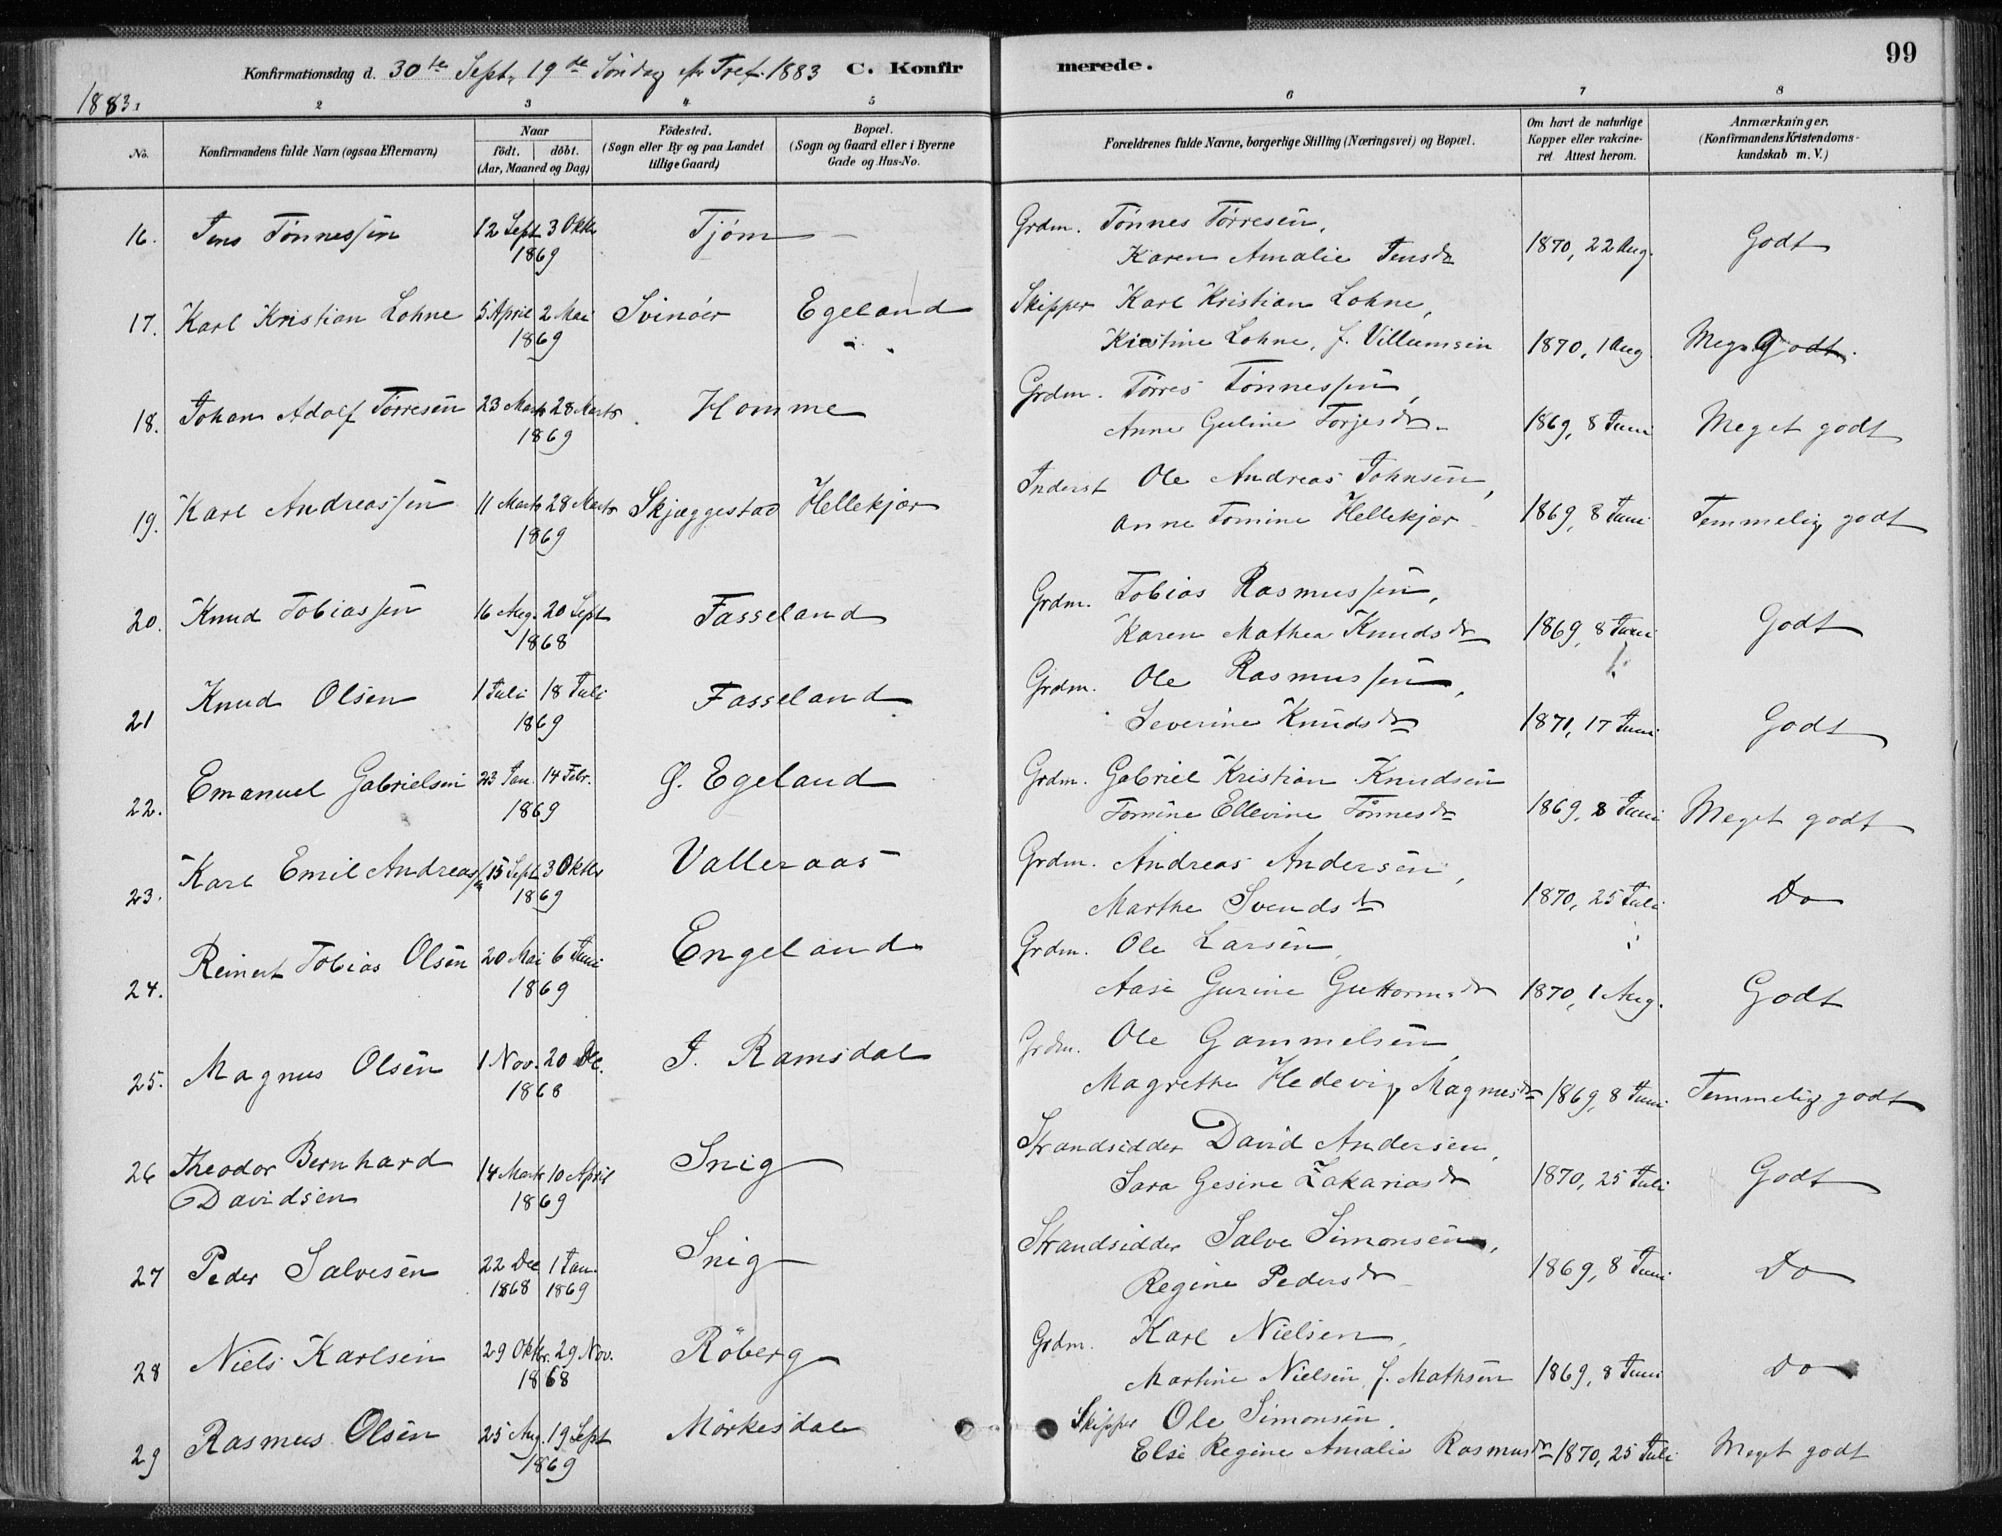 99
Konfirmationsdag d. 30te Sept, 19de Søndag efr Tref. 1883 C. Konfirmerede.
1883.
2 3 4 5 6 7 8
No. Konfirmandens fulde Navn (ogsaa Efternavn) Naar født. døbt. (Aar, Maaned og Dag) Fødested. (Sogn eller By og paa Landet tillige Gaard) Bopæl. (Sogn og Gaard eller i Byerne Gade og Hus-No. Forældrenes fulde Navne, borgerlige Stilling (Næringsvei) og Bopæl. Om havt de naturlige Kopper eller vakcineret. Attest herom. Anmærkninger. (Konfirmandens Kristendomskundskab m. V.)
16. Jens Tønnessen 12 Sept 3 Oktbr Tjøm Grdm. Tønnes Tørresen,
1869 Karen Amalie Jensdr 1870, 22 Aug. Godt
17. Karl Kristian Lohne 5 April 2 Mai Svinøer Egeland Skipper Karl Kristian Lohne,
1869 Kirstine Lohne, f. Villumsen 1870, 1 Aug. Meget Godt.
18. Johan Adolf Tørresen 23 Marts 28 Marts Homme Grdm. Tørres Tønnessen,
1869 Anne Guline Torjesdr 1869, 8 Juni Meget godt
19. Karl Andreassen 11 Marts 28 Marts Skjæggestad Hellekjær Inderst Ole Andreas Johnsen,
1869 Anne Tomine Hellekjær 1869, 8 Juni Temmelig godt
20. Knud Tobiassen 16 Aug. 20 Sept Fasseland Grdm. Tobias Rasmussen,
1868 Karen Mathea Knudsdr 1869, 8 Juni Godt
21 Knud Olsen 1 Juli 18 Juli Fasseland Grdm. Ole Rasmussen,
1869 Severine Knudsdr 1871, 17 Juni Godt
22. Emanuel Gabrielsen 23 Jan. 14 Febr. G. Egeland Grdm. Gabriel Kristian Knudsen
1869 Tomine Ellevine Tønnesdr 1869, 8 Juni Meget godt
23. Karl Emil Andreassen 15 Sept 3 Oktbr Valleraas Grdm. Andreas Andersen,
1869 Marthe Svendsdr 1870, 25 Juli Do
24. Reinert Tobias Olsen 20 Mai 6 Juni Engeland Grdm. Ole Larsen,
1869 Aase Gurine Guttormsdr 1870, 1 Aug. Godt
25. Magnus Olsen 1 Nov. 20 Dec. I. Ramsdal Grdm. Ole Gammelsen,
1868 Magrethe Hedevig Magnusdr 1869, 8 Juni Temmelig godt
26 Theodor Bernhard 14 Marts 10 April Snig Strandsidder David Andersen,
Davidsen 1869 Sara Gesine Zakariasdr 1870, 25 Juli Godt
27 Peder Salvesen 22 Dec 1 Jan. Snig Strandsidder Salve Simonsen,
1868 1869 Regine Pedersdr 1869, 8 Juni Do
28 Niels Karlsen 29 Oktbr. 29 Nov. Röberg Grdm. Karl Nielsen,
1868 Martine Nielsen, f. Mathsen 1869, 8 Juni Do
29 Rasmus Olsen 25 Aug. 19 Sept Mörkesdal Skipper Ole Simonsen.
1869 Else Regine Amalie Rasmusdr 1870, 25 Juli Meget godt